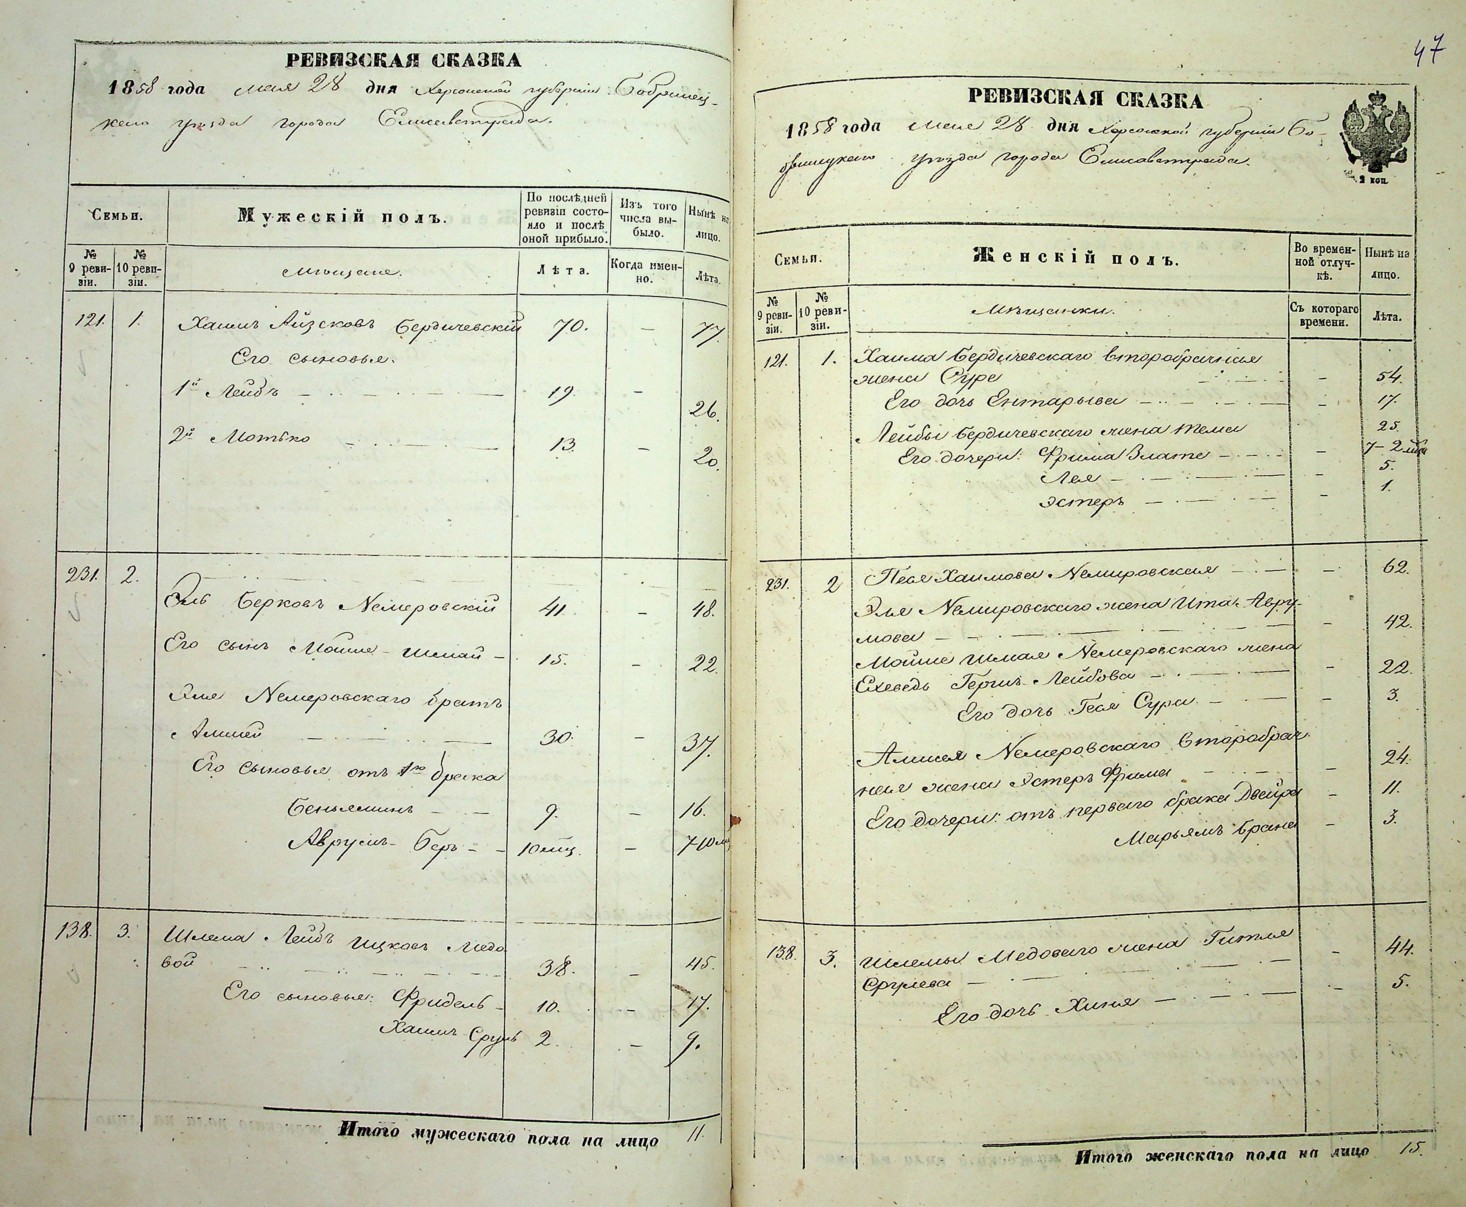 РЕВИЗСКАЯ СКАЗКА
1858 года мая 28 дня Херсонской губернии Бобринец-
каго уезда города Елисаветграда.
Семьи.
Мужескій полъ.
По послѣдней ревизіи состояло и послѣ оной прибыло.
Изъ того числа выбыло.
Нынѣ на лицо.
№ 9 ревизіи.
№ 10 ревизіи.
мещане.
Лѣта.
Когда именно.
Лѣта.
121. 1. Хаимъ Айзековъ Бердичевскій 70. — 77.
Его сыновья.
1й Лейбъ — 19. — 26.
2й Мотько — 13. — 20.
231. 2.
Эль Берковъ Немеровскій 41. — 48.
Его сынъ Мойше-Шмай — 15. — 22.
Эля Немеровскаго братъ
Амшей — 30. — 37.
Его сыновья отъ 1го брака
Беньяминъ — 9. — 16.
Аврумъ-Беръ — 10 мѣц. — 7-10 м
138. 3. Шлема Лейбъ Ицковъ Медо
вой — 38. — 45.
Его сыновья: Фридель — 10. — 17.
Хаимъ Сруль 2. — 9.
Итого мужескаго пола на лицо 11.
47
РЕВИЗСКАЯ СКАЗКА
1858 года мая 28 дня Херсонской губерніи Бо-
бринецкаго уѣзда города Елисаветграда.
2 коп.
Семьи.
Женскій полъ.
Во временной отлучкѣ.
Нынѣ на лицо.
№ 9 ревизіи.
№ 10 ревизіи.
Мѣщанки.
Съ котораго времени.
Лѣта.
121. 1. Хаима Бердичевскаго второбрачная
жена Сура — 54.
Его дочь Ентарыва — 17.
Лейбы Бердичевскаго жена Тема 25.
Его дочери: Фрима Злата — 7-2 мѣц
Лея — 5.
Эстеръ — 1.
231. 2 Песя Хаимова Немировская — 62.
Эля Немировскаго жена Ита Авру-
мова — 42.
Мойше Шмая Немеровскаго жена
Ехеведь Герш-Лейбова — 22.
Его дочь Гося Сура — 3.
Амшея Немеровскаго второбрач-
ная жена Эстеръ Фрима — 24.
Его дочери: отъ перваго брака Двейра — 11.
Марьямъ Брана — 3.
138. 3. Шлемы Медоваго жена Гитля — 44.
Срулева
Его дочь Хиня — 5.
Итого женскаго пола на лицо 15.